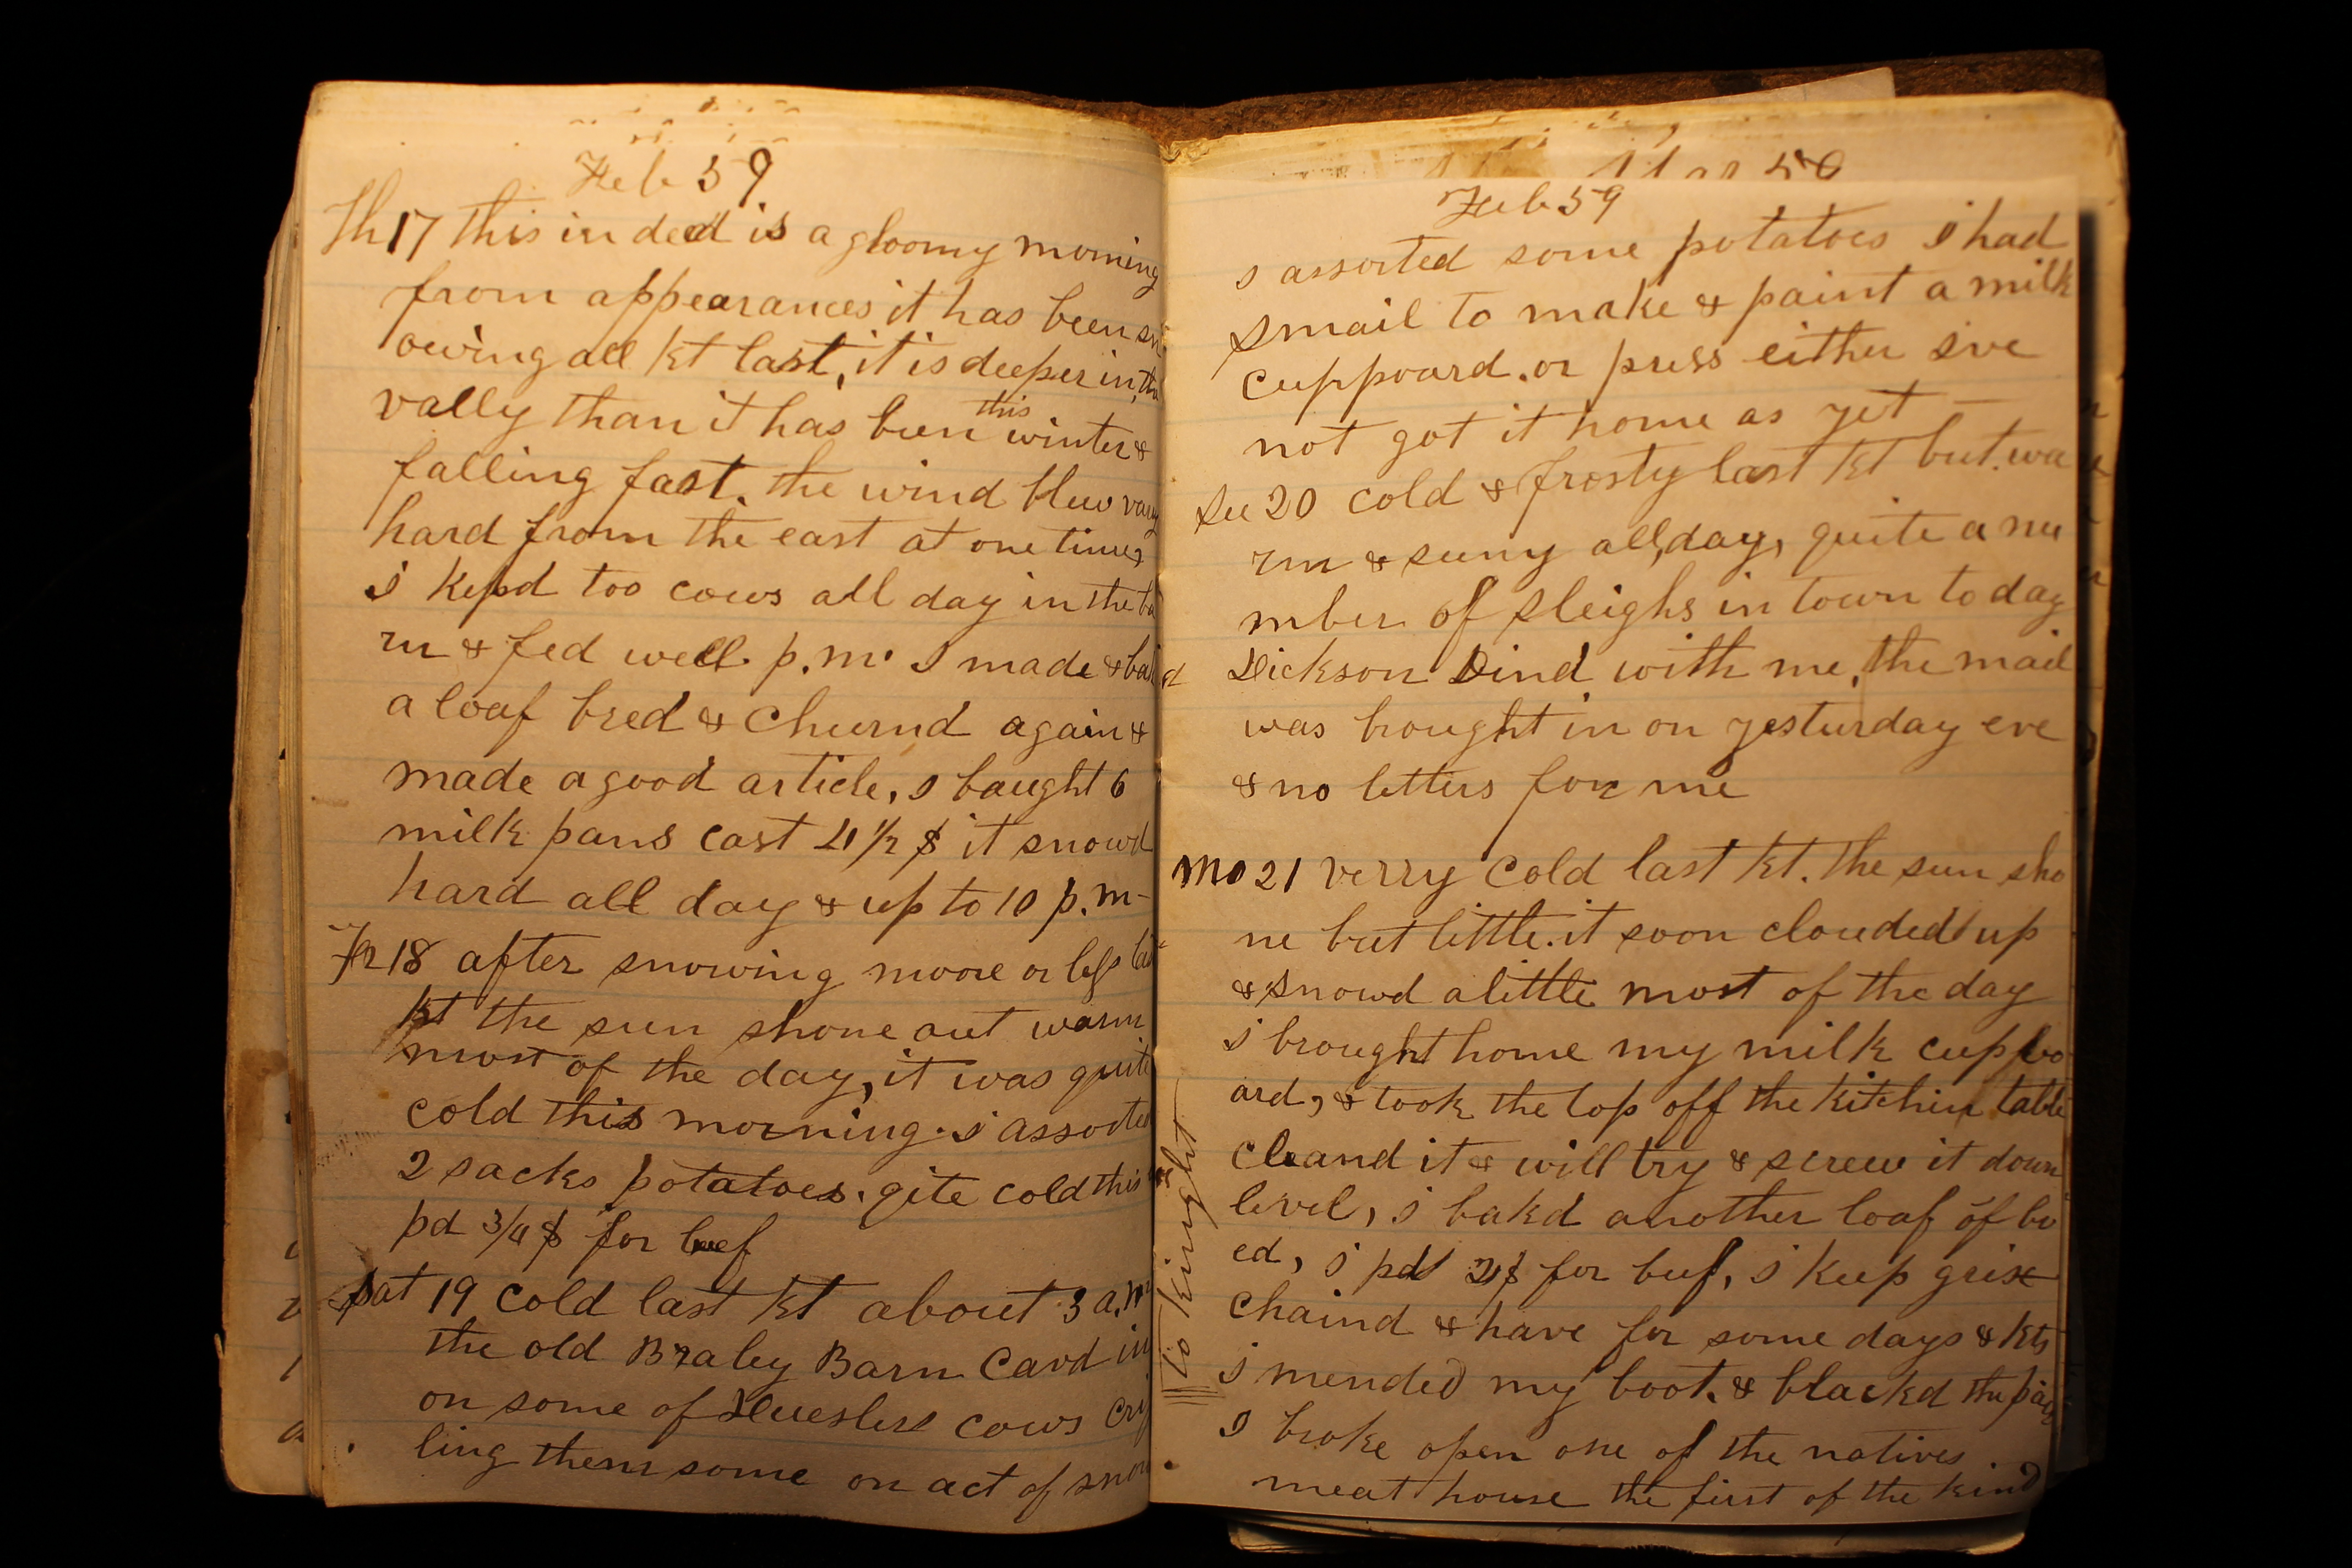 Feb 59
Th 17 this in deed is a gloomy morning
from appearances it has been sn
owing all Kt last, it is deeper in the
vally than it has been this winter &
falling fast. the wind blew vary
hard from the east at one time,
I kepd too cows all day in the ba
rn & fed well. p.m. I made & bakd
a loaf bred & Churnd again &
made a good article, I baught 6
milk pans cast 4 1/2 $ it snowd
hard all day & up to 10 p.m -
Fr 18 after snowing moore or less last
Kt the sun shone out warm
most of the day, it was quite
cold this morning. I assorted
2 sacks potatoes. qite cold this
pd 3/4 $ for beef
Sat 19 cold last Kt about 3 a.m
the old Braley Barn Cavd in
on some of cows crip
ling them some on act of snow
Feb 59
I assorted some potatoes I had
Smail to make & paint a milk
cuppoard. or press either I've
not got it home as yet —
Su 20 cold & frosty last Kt but wa
rm & suny all day, quite a nu
mber of sleighs in town to day
Dickson Dind with me, the mail
was brought in on yesturday eve
& no letters for me
Mo 21 verry Cold last Kt. the sun sho
ne but little. it soon clouded up
& snowd a little most of the day
I brought home my milk cuppbo
ard, & took the top off the kitchin table
cleand it & will try & screw it down
level, I bakd another loaf of br
ed, I pd $ for beef, I keep grise
chaind & have for some days & Kts
I mended my boot. & blackd the pair
I broke open one of the natives
meat house the first of the kind
to kinght